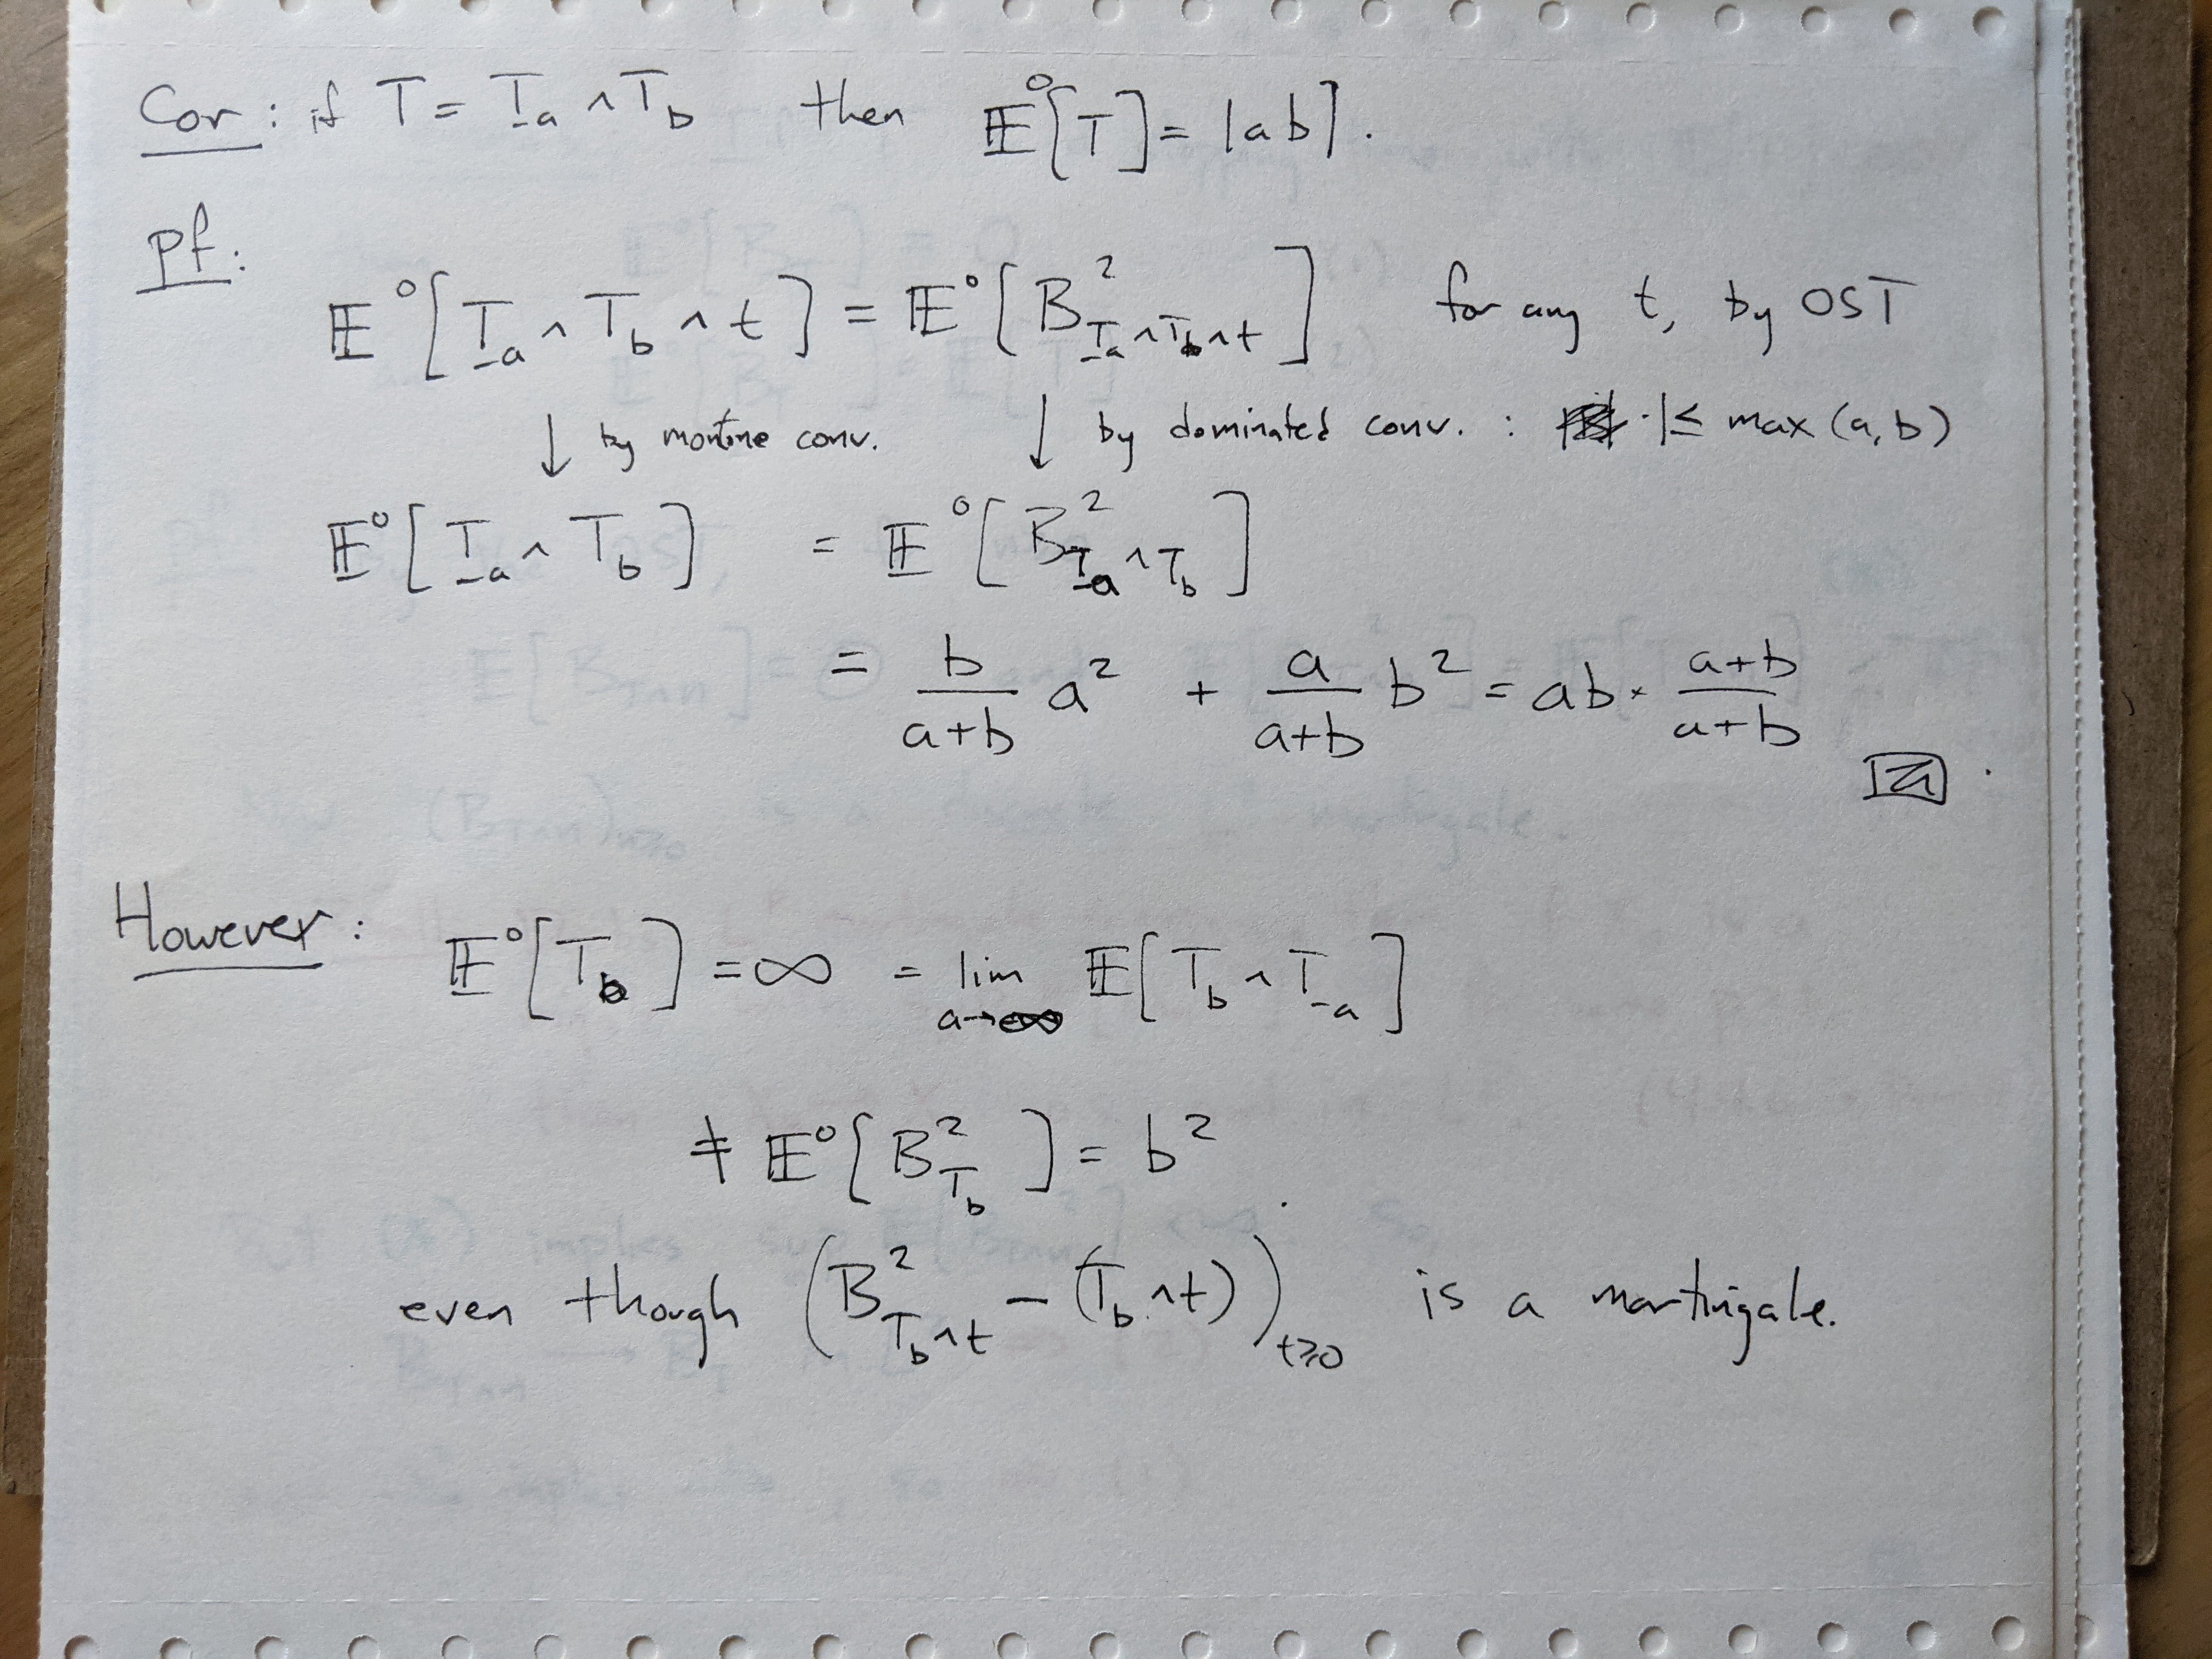 Cor: if T = T_{-a} ∧ T_b then 𝔼⁰[T] = |ab|.
Pf:
𝔼⁰[T_{-a} ∧ T_b ∧ t] = 𝔼⁰[B²_{T_{-a} ∧ T_b ∧ t}] for any t, by OST
↓ by montone conv. ↓ by dominated conv. : |·| ≤ max(a,b)
𝔼⁰[T_{-a} ∧ T_b] = 𝔼⁰[B²_{T_{-a} ∧ T_b}]
= \frac{b}{a+b} a² + \frac{a}{a+b} b² = ab · \frac{a+b}{a+b}
However: 𝔼⁰[T_b] = ∞ = lim_{a→∞} 𝔼[T_b ∧ T_{-a}]
≠ 𝔼⁰[B²_{T_b}] = b².
even though (B²_{T_b ∧ t} − (T_b ∧ t))_{t≥0} is a martingale.